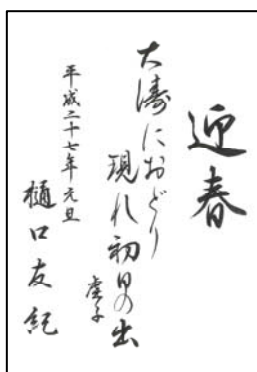 迎春
大濤におどり
現れ初日の出
虚子
平成二十七年元旦
樋口友紀